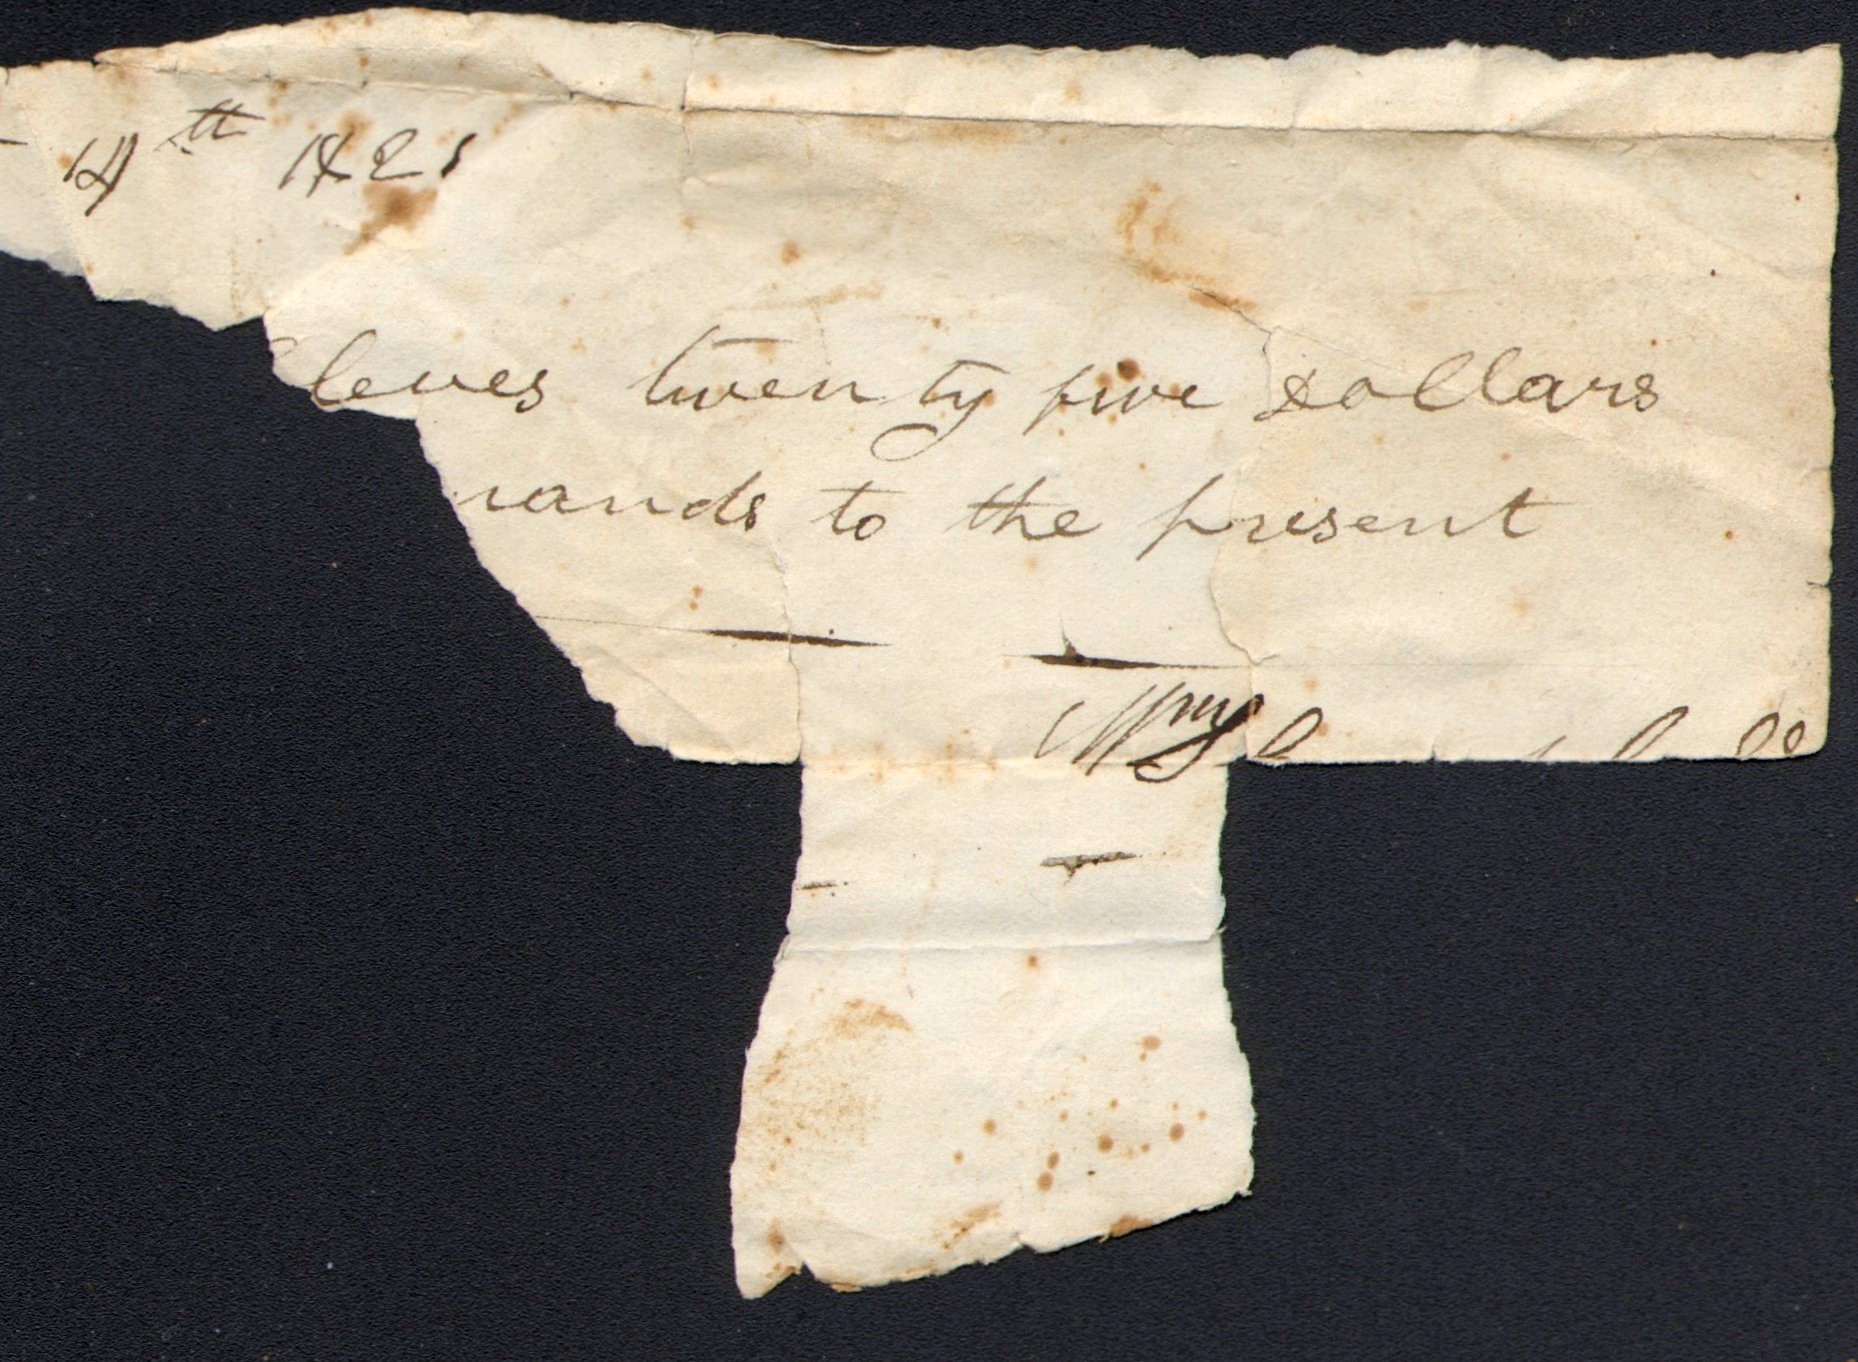 14th 1821
leves twenty five dollars
rands to the present
Wm